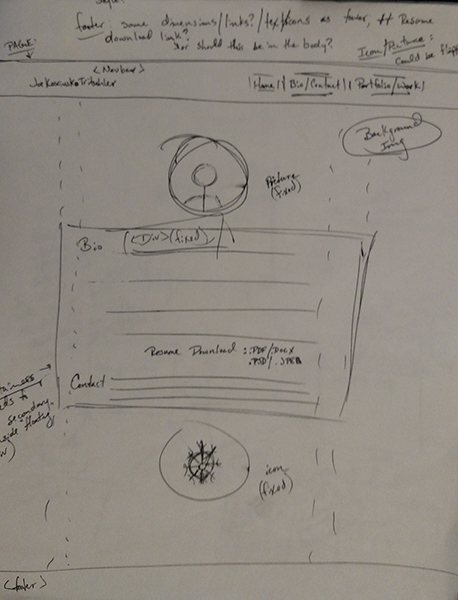 footer: same dimensions/links?/text/icons as footer, ++ Resume
download link?
*or should this be in the body?
Icon/Picture:
could be flipp
PAGE:
<Navbar>
| Home | | Bio/Contact | | Portfolio/Work |
Background
Img
Picture
(fixed)
Bio
<Div>(fixed)
Resume Download ::.PDF/.DOCX
.PSD/.JPEG
Contact
secondary
icon
(fixed)
<footer>